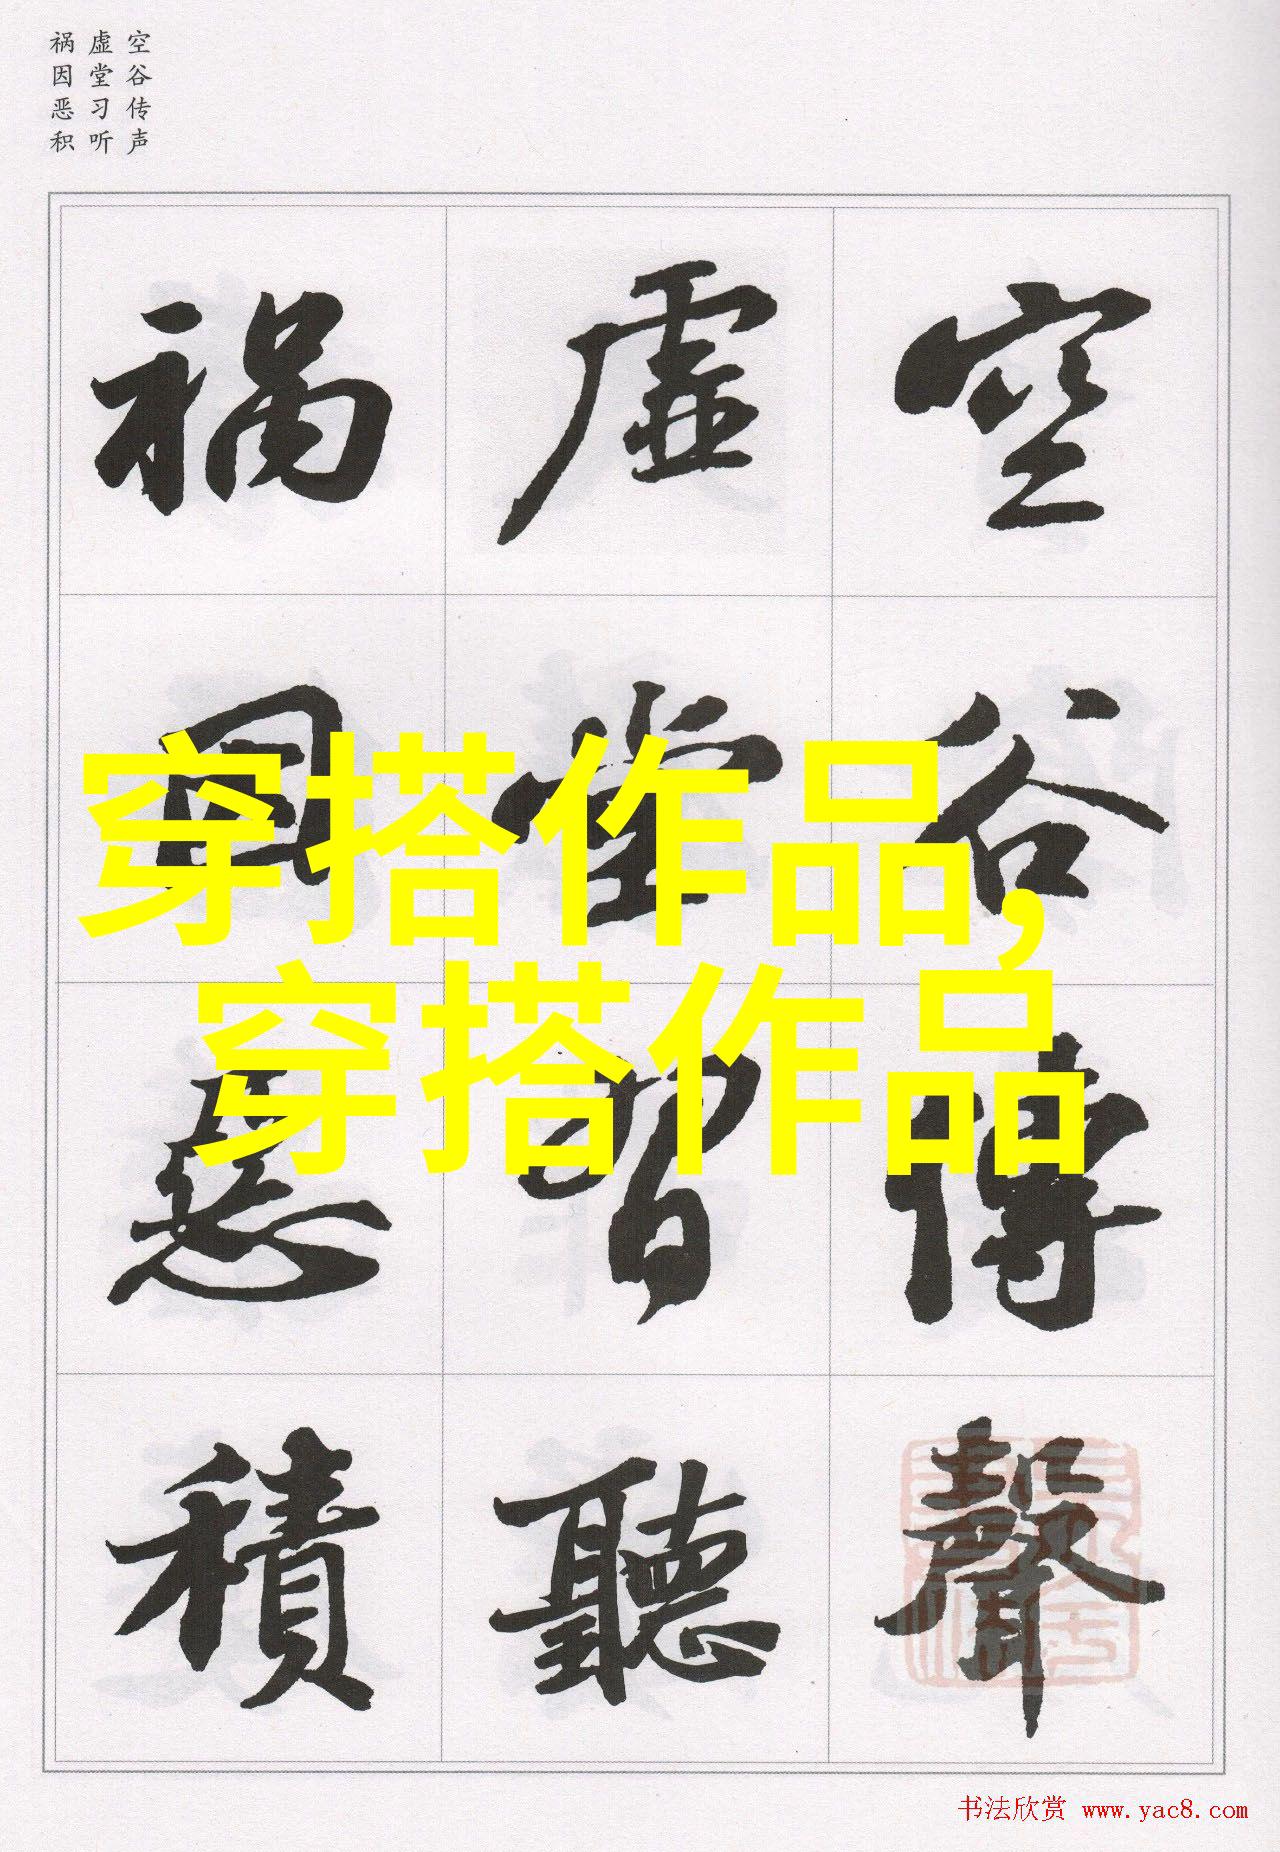 空谷传声
虚堂习听
祸因恶积
空谷傳聲
虚堂習聽
禍因惡積
穿搭作品,
穿搭作品
书法欣赏 www.yac8.com